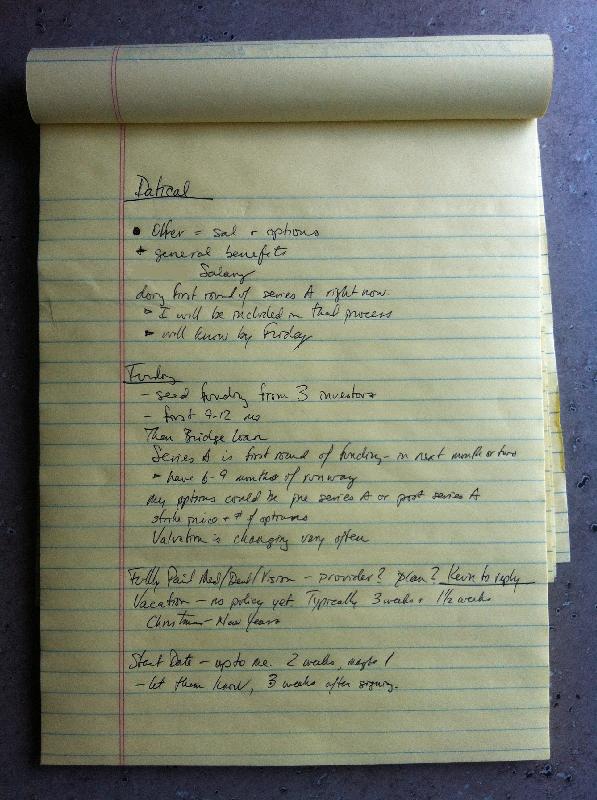 Datical
• Offer = sal + options
+ general benefits
Salary
doing first round of series A right now.
- I will be included in that process
- will know by Friday
Funding
- seed funding from 3 investors
- first 9-12 mo
Then Bridge loan
Series A is first round of funding - in next month or two
- have 6-9 months of runway
my options could be pre series A or post series A
strike price + # of options
Valuation is changing very often
Fully Paid Med/Dent/Vision - provider? plan? Kevin to reply
Vacation - no policy yet. Typically 3 weeks + 1½ weeks
Christmas - New Years
Start Date - up to me. 2 weeks, maybe 1
- let them know, 3 weeks after signing.